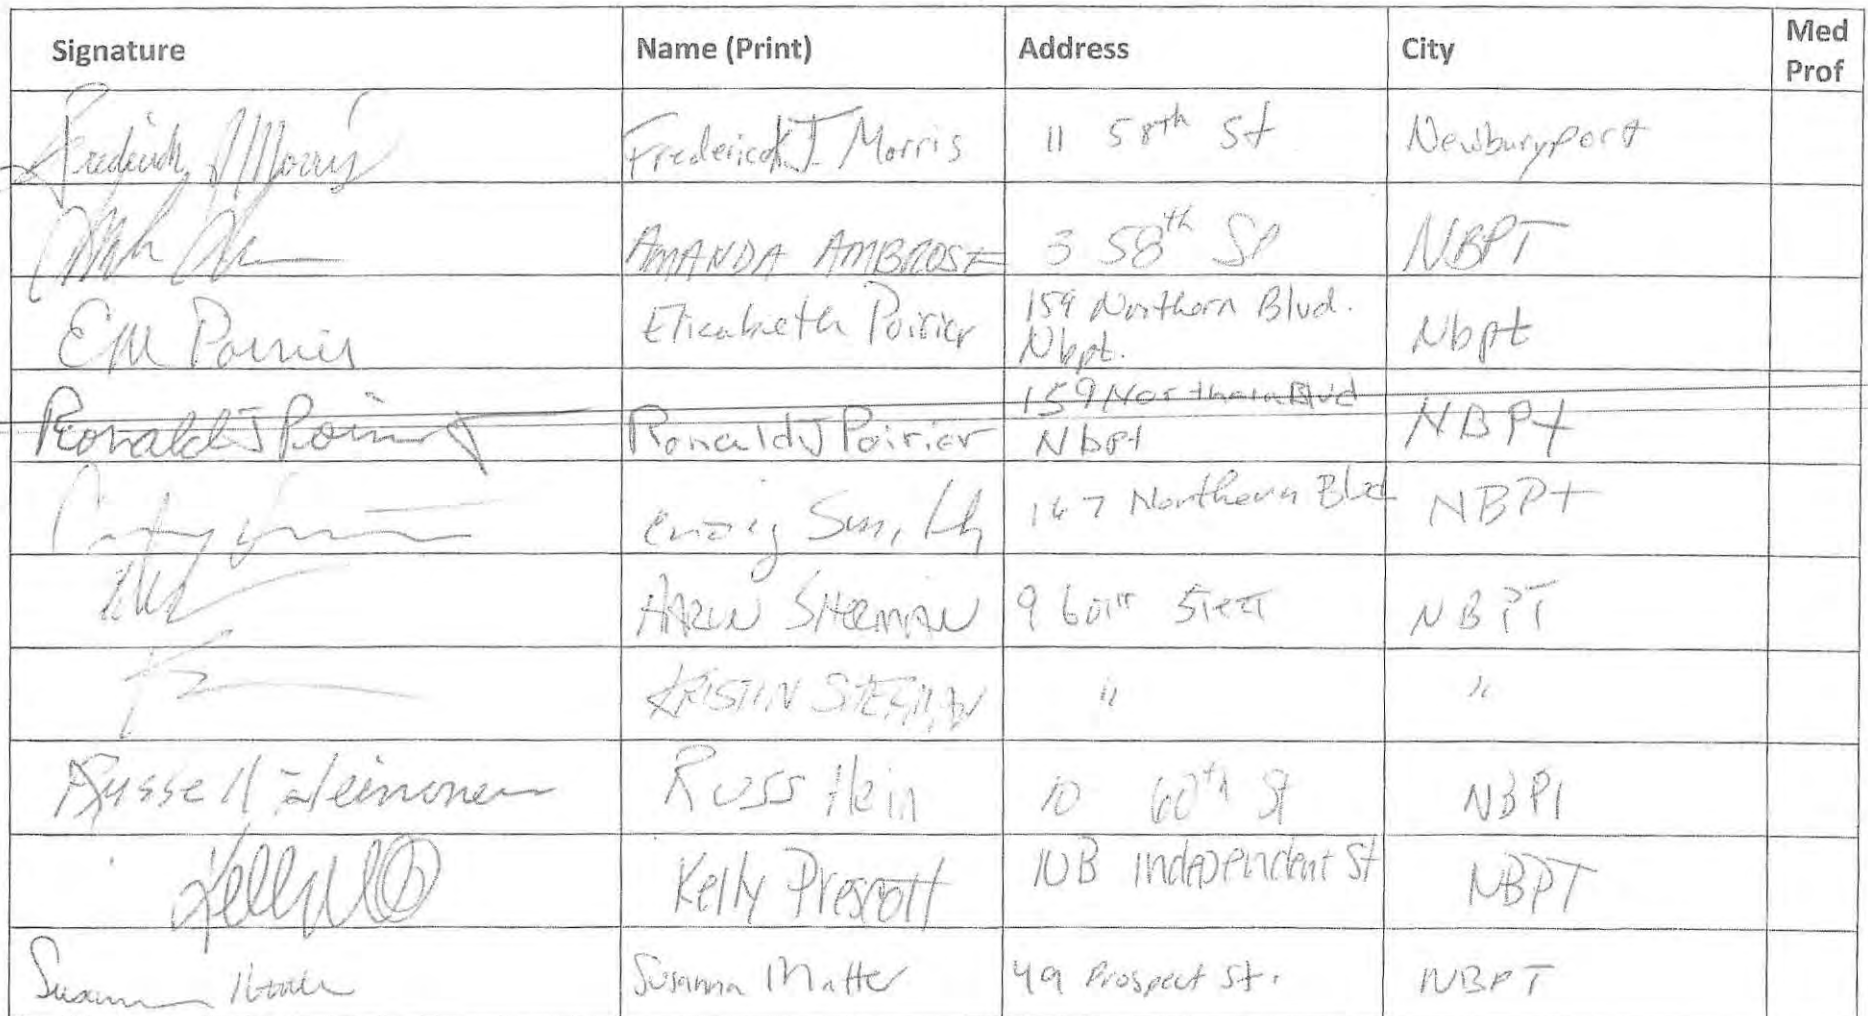 Signature Name (Print) Address City Med Prof
Frederick J Morris Frederick J. Morris 11 58th St Newburyport
AMANDA AMBROSE 3 58th St NBPT
EM Poirier Elizabeth Poirier 159 Northern Blvd. Nbpt. Nbpt
Ronald J Poirier Ronald J Poirier 159 Northern Blvd Nbpt NBPt
Craig Smith 147 Northern Blvd NBPt
SHERMAN 9 60th Street NBPT
KRISTIN SHERMAN " "
Russell Heinonen Russ Hein 10 60th St NBPT
Kelly Prescott 10B Independent St NBPT
Susanna Susanna Matter 49 Prospect St. NBPT